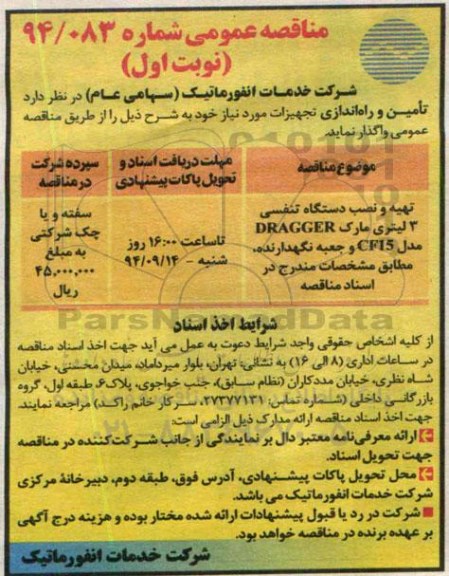 مناقصه عمومی شماره ۹۴/۰۸۳
(نوبت اول)
شرکت خدمات انفورماتیک (سهامی عام) در نظر دارد
تأمین و راه‌اندازی تجهیزات مورد نیاز خود به شرح ذیل را از طریق مناقصه
عمومی واگذار نماید.
موضوع مناقصه
مهلت دریافت اسناد و
تحویل پاکات پیشنهادی
سپرده شرکت
در مناقصه
تهیه و نصب دستگاه تنفسی
۳ لیتری مارک DRAGGER
مدل CF15 و جعبه نگهدارنده،
مطابق مشخصات مندرج در
اسناد مناقصه
تا ساعت ۱۶:۰۰ روز
شنبه - ۹۴/۰۹/۱۴
سفته و یا
چک شرکتی
به مبلغ
۴۵,۰۰۰,۰۰۰
ریال
ParsNamadData
شرایط اخذ اسناد
از کلیه اشخاص حقوقی واجد شرایط دعوت به عمل می آید جهت اخذ اسناد مناقصه
در ساعات اداری (۸ الی ۱۶) به نشانی: تهران، بلوار میرداماد، میدان محسنی، خیابان
شاه نظری، خیابان مددکاران (نظام سابق)، جنب خواجوی، پلاک۶، طبقه اول، گروه
بازرگانی داخلی (شماره تماس: ۲۷۳۷۷۱۳۱، سرکار خانم راکد) مراجعه نمایند.
جهت اخذ اسناد مناقصه ارائه مدارک ذیل الزامی است:
ارائه معرفی‌نامه معتبر دال بر نمایندگی از جانب شرکت‌کننده در مناقصه
جهت تحویل اسناد.
محل تحویل پاکات پیشنهادی، آدرس فوق، طبقه دوم، دبیرخانهٔ مرکزی
شرکت خدمات انفورماتیک می باشد.
شرکت در رد یا قبول پیشنهادات ارائه شده مختار بوده و هزینه درج آگهی
بر عهده برنده در مناقصه خواهد بود.
شرکت خدمات انفورماتیک